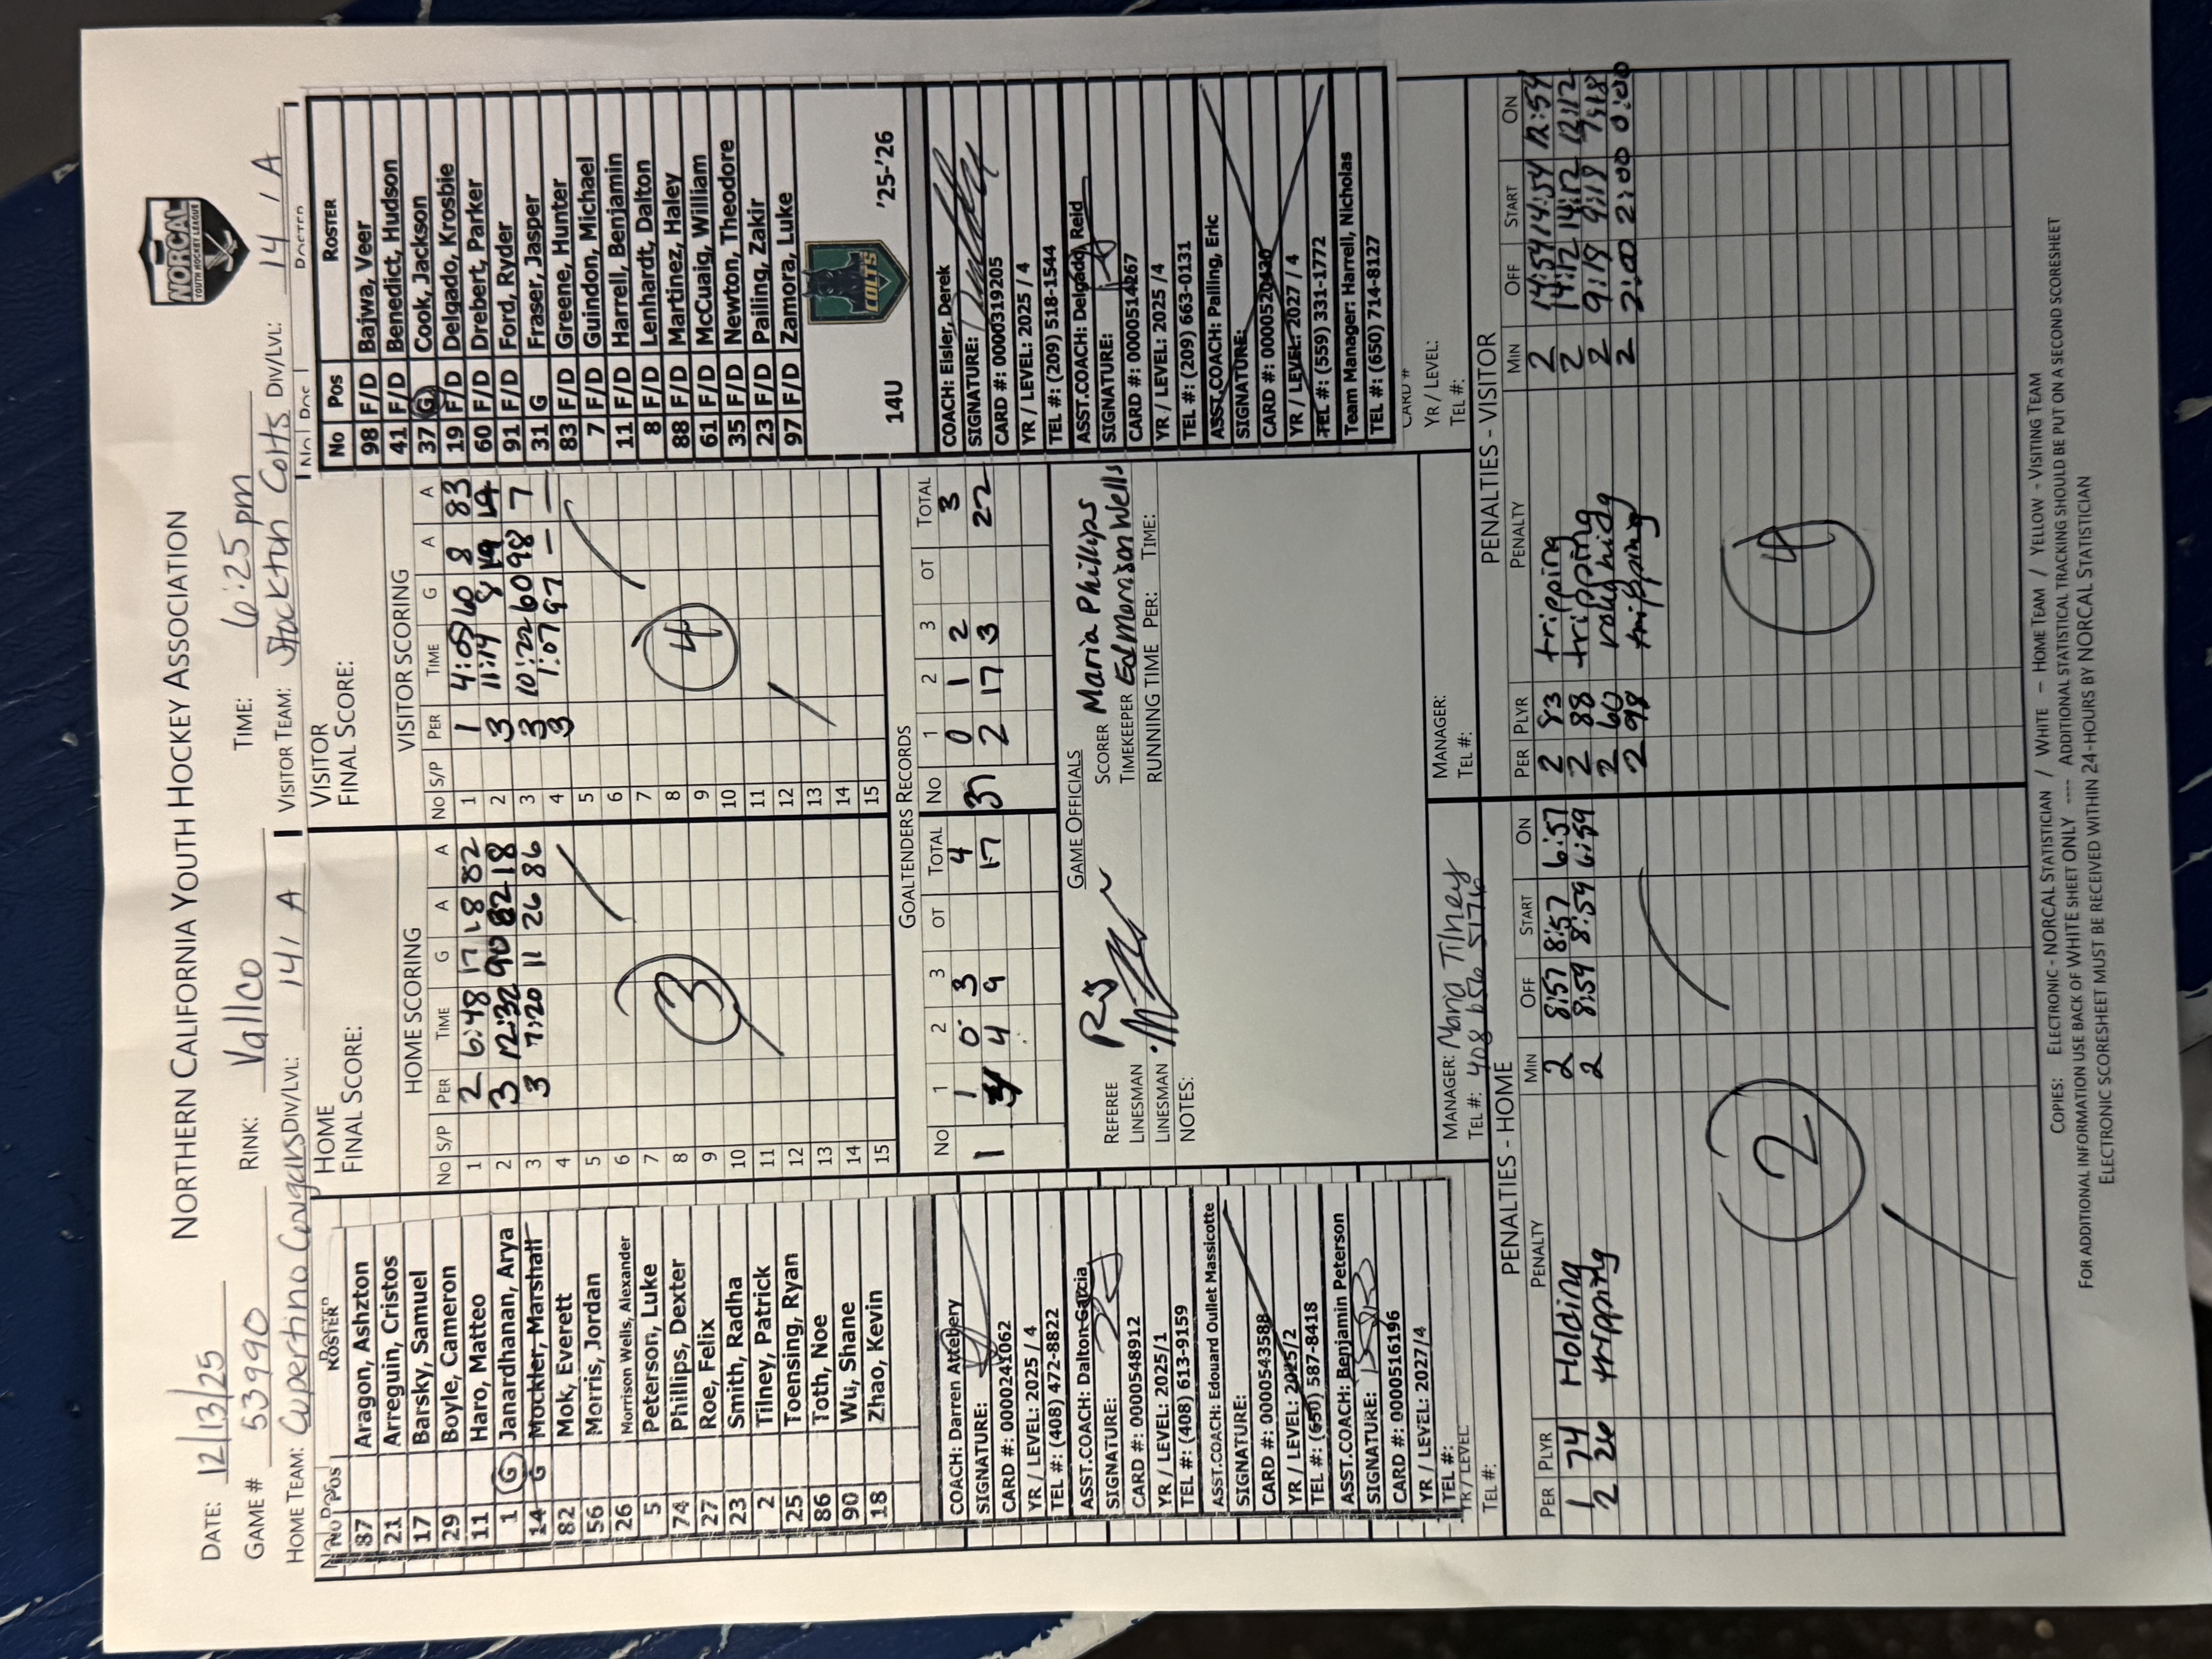 NORTHERN CALIFORNIA YOUTH HOCKEY ASSOCIATION
NORCAL
YOUTH HOCKEY LEAGUE
DATE: 12/13/25
GAME # 53990 RINK: Vallco TIME: 6:25 pm
HOME TEAM: Cupertino Cougars DIV/LVL: 14 / A VISITOR TEAM: Stockton Colts DIV/LVL: 14 / A
No Pos ROSTER
87 Aragon, Ashzton
21 Arreguin, Cristos
17 Barsky, Samuel
29 Boyle, Cameron
11 Haro, Matteo
1 G Janardhanan, Arya
14 G Mockler, Marshall
82 Mok, Everett
56 Morris, Jordan
26 Morrison Wells, Alexander
5 Peterson, Luke
74 Phillips, Dexter
27 Roe, Felix
23 Smith, Radha
2 Tilney, Patrick
25 Toensing, Ryan
86 Toth, Noe
90 Wu, Shane
18 Zhao, Kevin
COACH: Darren Attebery
SIGNATURE:
CARD #: 0000241062
YR / LEVEL: 2025 / 4
TEL #: (408) 472-8822
ASST.COACH: Dalton Garcia
SIGNATURE:
CARD #: 0000548912
YR / LEVEL: 2025/1
TEL #: (408) 613-9159
ASST.COACH: Edouard Oullet Massicotte
SIGNATURE:
CARD #: 0000543588
YR / LEVEL: 2025/2
TEL #: (650) 587-8418
ASST.COACH: Benjamin Peterson
SIGNATURE:
CARD #: 0000516196
YR / LEVEL: 2027/4
TEL #:
YR / LEVEL:
TEL #:
HOME
FINAL SCORE:
HOME SCORING
No S/P PER TIME G A A
1 2 6:48 17 18 82
2 3 12:32 90 82 18
3 3 7:20 11 26 86
4
5
6
7
8
9
10
11
12
13
14
15
3
VISITOR
FINAL SCORE:
VISITOR SCORING
No S/P PER TIME G A A
1 1 4:09 60 8 83
2 3 11:14 8 19
3 3 10:22 60 98 7
4 3 1:07 97 — —
5
6
7
8
9
10
11
12
13
14
15
4
GOALTENDERS RECORDS
No 1 2 3 OT TOTAL No 1 2 3 OT TOTAL
1 1 0 3 4 37 0 1 2 3
4 4 9 17 2 17 3 22
GAME OFFICIALS
REFEREE SCORER Maria Phillips
LINESMAN TIMEKEEPER Ed Morrison Wells
LINESMAN RUNNING TIME PER: TIME:
NOTES:
MANAGER: Maria Tilney
TEL #: 408 656 5176
MANAGER:
TEL #:
No Pos ROSTER
98 F/D Bajwa, Veer
41 F/D Benedict, Hudson
37 G Cook, Jackson
19 F/D Delgado, Krosbie
60 F/D Drebert, Parker
91 F/D Ford, Ryder
31 G Fraser, Jasper
83 F/D Greene, Hunter
7 F/D Guindon, Michael
11 F/D Harrell, Benjamin
8 F/D Lenhardt, Dalton
88 F/D Martinez, Haley
61 F/D McCuaig, William
35 F/D Newton, Theodore
23 F/D Pailing, Zakir
97 F/D Zamora, Luke
14U COLTS '25-'26
COACH: Eisler, Derek
SIGNATURE:
CARD #: 0000319205
YR / LEVEL: 2025 / 4
TEL #: (209) 518-1544
ASST.COACH: Delgado, Reid
SIGNATURE:
CARD #: 0000514267
YR / LEVEL: 2025 /4
TEL #: (209) 663-0131
ASST.COACH: Pailing, Eric
SIGNATURE:
CARD #: 0000520430
YR / LEVEL: 2027 / 4
TEL #: (559) 331-1772
Team Manager: Harrell, Nicholas
TEL #: (650) 714-8127
CARD #
YR / LEVEL:
TEL #:
PENALTIES - HOME
PER PLYR PENALTY MIN OFF START ON
1 74 Holding 2 8:57 8:57 6:57
2 26 tripping 2 8:59 8:59 6:59
2
PENALTIES - VISITOR
PER PLYR PENALTY MIN OFF START ON
2 83 tripping 2 14:54 14:54 12:54
2 88 tripping 2 14:12 14:12 12:12
2 60 roughing 2 9:19 9:19
2 98 tripping 2 2:00 2:00 0:00
4
COPIES: ELECTRONIC - NORCAL STATISTICIAN / WHITE – HOME TEAM / YELLOW - VISITING TEAM
FOR ADDITIONAL INFORMATION USE BACK OF WHITE SHEET ONLY ---- ADDITIONAL STATISTICAL TRACKING SHOULD BE PUT ON A SECOND SCORESHEET
ELECTRONIC SCORESHEET MUST BE RECEIVED WITHIN 24-HOURS BY NORCAL STATISTICIAN